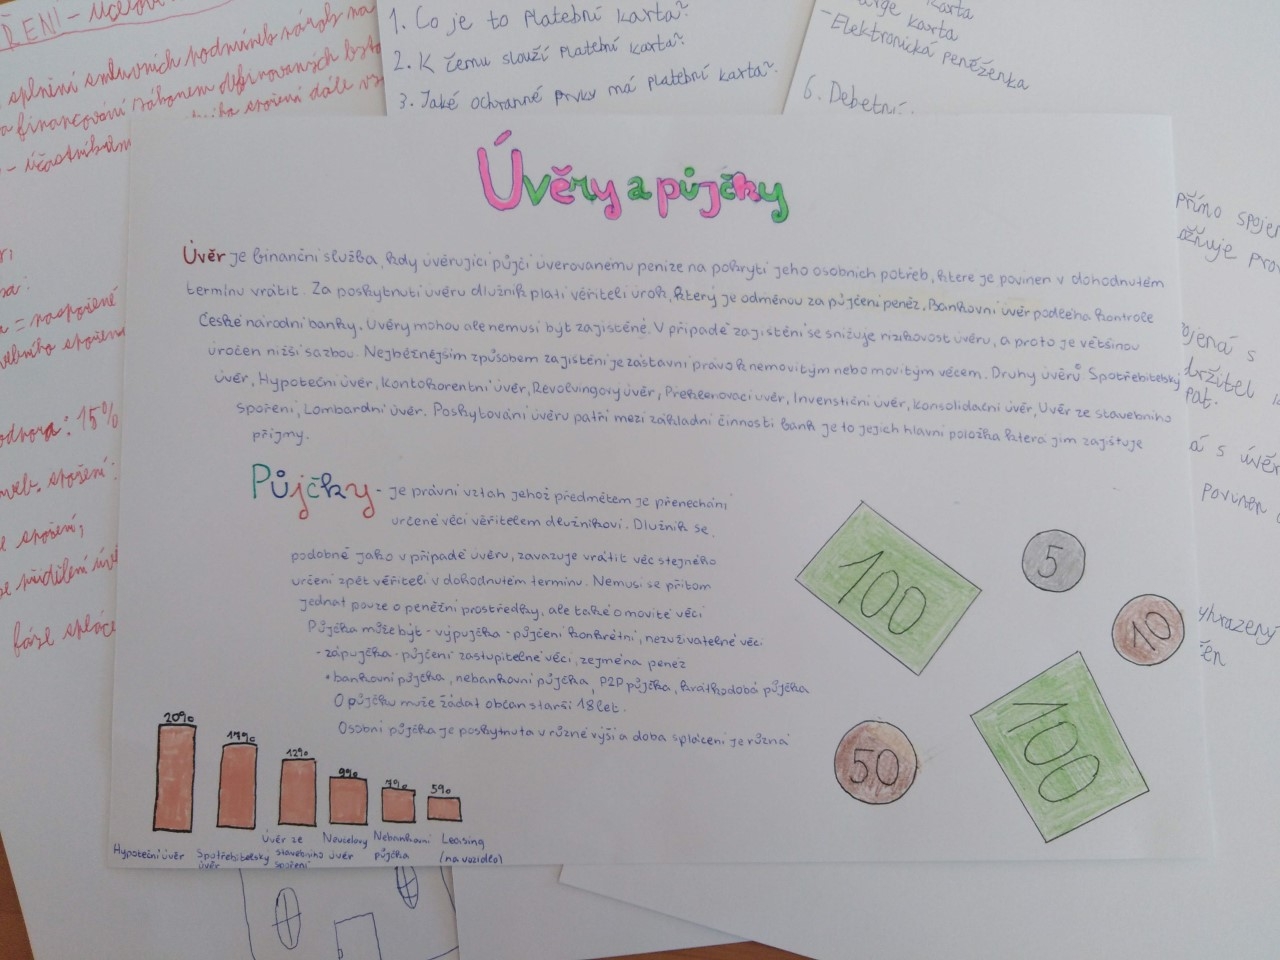 1. Co je to platební karta?
2. K čemu slouží platební karta?
3. Jaké ochranné prvky má platební karta?
karta
karta
- Elektronická peněženka
6. Debetní
splnění smluvních podmínek nárok na
financování zákonem definovaných
spoření dále
- účastník
= naspořené
15%
spoření:
spoření,
přidělení
fáze
přímo
s
držitel
s
povinen
Úvěry a půjčky
Úvěr je finanční služba, kdy úvěrující půjčí úvěrovanému peníze na pokrytí jeho osobních potřeb, které je povinen v dohodnutém
termínu vrátit. Za poskytnutí úvěru dlužník platí věřiteli úrok, který je odměnou za půjčení peněz. Bankovní úvěr podléhá kontrole
České národní banky. Úvěry mohou ale nemusí být zajištěné. V případě zajištění se snižuje rizikovost úvěru, a proto je většinou
úročen nižší sazbou. Nejběžnějším způsobem zajištění je zástavní právo k nemovitým nebo movitým věcem. Druhy úvěrů: Spotřebitelský
úvěr, Hypoteční úvěr, Kontokorentní úvěr, Revolvingový úvěr, Překlenovací úvěr, Invenstiční úvěr, Konsolidační úvěr, Úvěr ze stavebního
spoření, Lombardní úvěr. Poskytování úvěru patří mezi základní činnosti bank je to jejich hlavní položka která jim zajišťuje
příjmy.
Půjčky - je právní vztah jehož předmětem je přenechání
určené věci věřitelem dlužníkovi. Dlužník se,
podobně jako v případě úvěru, zavazuje vrátit věc stejného
určení zpět věřiteli v dohodnutém termínu. Nemusí se přitom
jednat pouze o peněžní prostředky, ale také o movité věci
Půjčka může být - výpujčka - půjčení konkrétní, nezuživatelné věci
- zápujčka - půjčení zastupitelné věci, zejména peněz
• bankovní půjčka, nebankovní půjčka, P2P půjčka, krátkodobá půjčka
O půjčku může žádat občan starší 18 let.
Osobní půjčka je poskytnuta v různé výši a doba splácení je různá
20%
17%
12%
9%
7%
5%
Hypoteční úvěr
Spotřebitelský
úvěr
Úvěr ze
stavebního
spoření
Neúčelový
úvěr
Nebankovní
půjčka
Leasing
(na vozidlo)
100
5
10
50
100